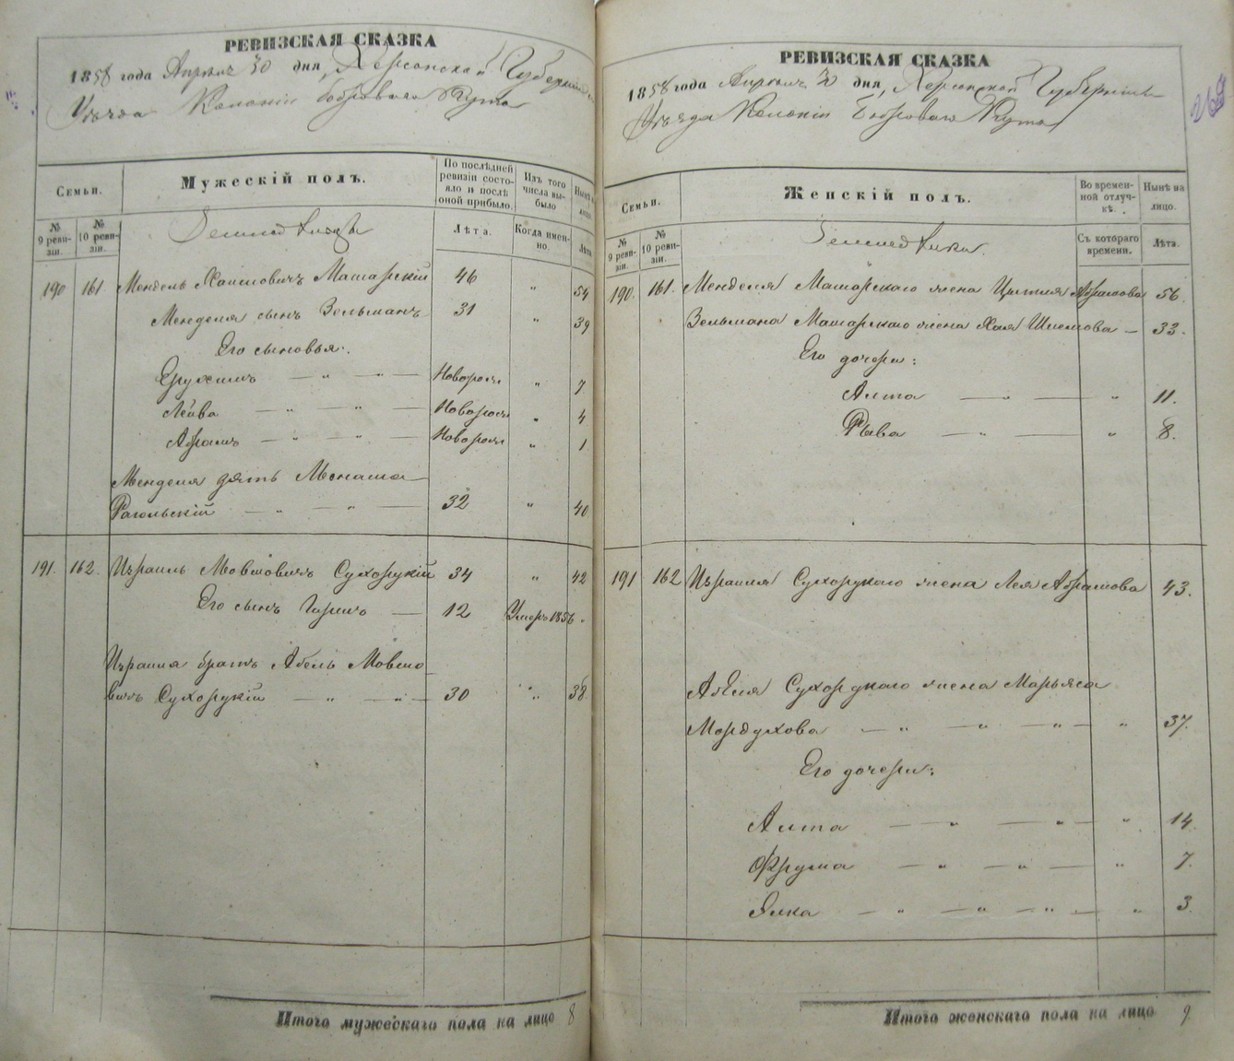 РЕВИЗСКАЯ СКАЗКА
1858 года Апреля 30 дня, Херсонской Губернии
Уѣзда Колоніи Бобровый Кутъ
Семьи.
Мужескій полъ.
По послѣдней ревизіи состояло и послѣ оной прибыло.
Изъ того числа выбыло
Нынѣ на лицо.
№ 9 ревизіи.
№ 10 ревизіи.
Лѣта.
Когда именно.
Лѣта
190 161 Мендель Хаимовичъ Машарскій 46 " 54
Менделя сынъ Зельманъ 31 " 39
Его сыновья:
— " — " — Новорожд " 7
Лейба — " — " — Новорожд " 4
Абрамъ — " — " — Новорожд " 1
Менделя зять Менаша
— " — " — 32 " 40
191. 162. Израиль Мовшовичъ Сухорукій 34 " 42
Его сынъ Гиршъ — 12 Умеръ 1856.
Израиля братъ Абель Мовшо
вичъ Сухорукій — " — " — 30 " 38
Итого мужескаго пола на лицо 8
РЕВИЗСКАЯ СКАЗКА
1858 года Апреля 30 дня, Херсонской Губерніи
Уѣзда Колоніи Бобровый Кутъ
Семьи.
Женскій полъ.
Во временной отлучкѣ.
Нынѣ на лицо.
№ 9 ревизіи.
№ 10 ревизіи.
Съ котораго времени.
Лѣта.
190. 161. Менделя Машарскаго жена Абрамова 56.
Зельмана Машарскаго жена Хая — 33.
Его дочери:
Алта — " — " 11.
Рава — " — " 8.
191 162 Израиля Сухорукаго жена Лея Абрамова 43.
Абеля Сухорукаго жена Марьяса
Мордухова — " — " — " — " 37.
Его дочери:
Алта — " — " — " 14.
Фрума — " — " — " 7.
— " — " — " — " 3.
Итого женскаго пола на лицо 9